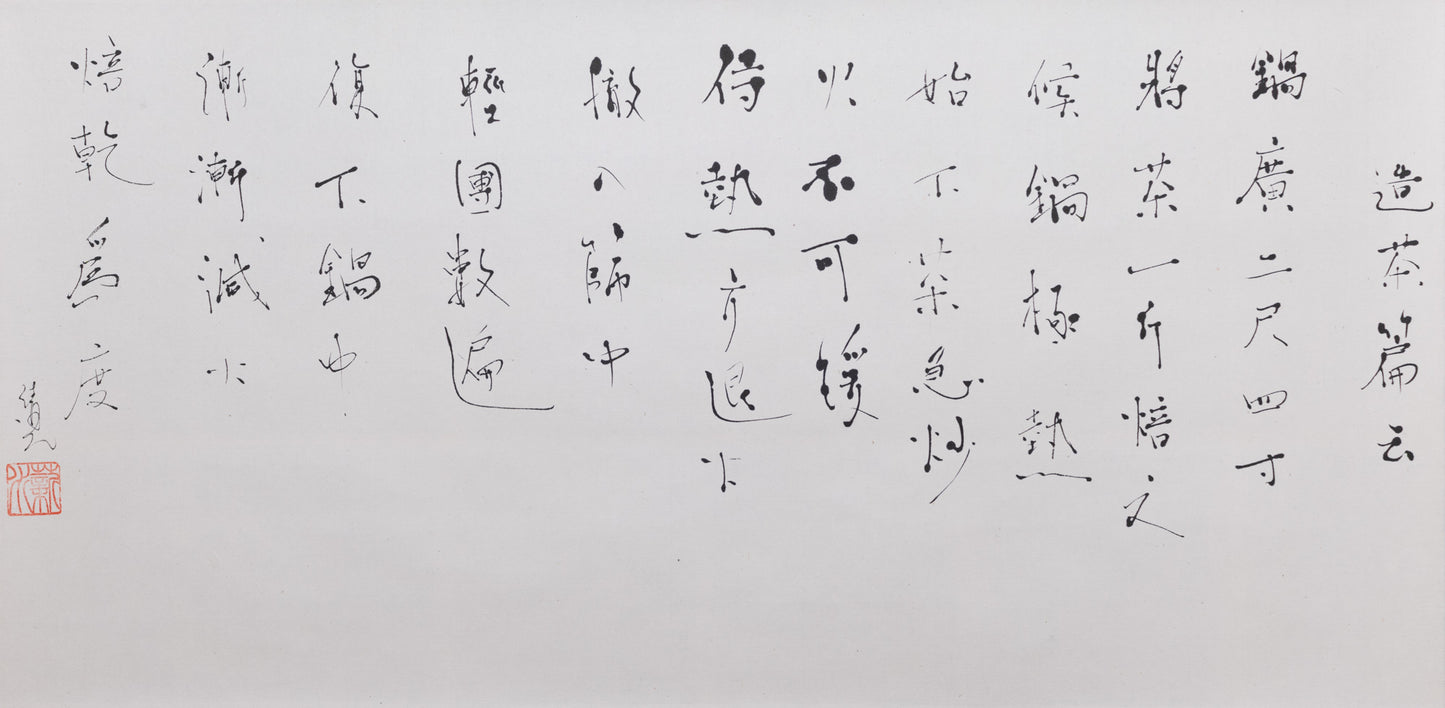 造茶篇云
鍋廣二尺四寸
將茶一斤焙之
候鍋極熱
始下茶急炒
火不可緩
待熟方退火
撤入篩中
輕團數遍
復下鍋中
漸漸減火
焙乾爲度